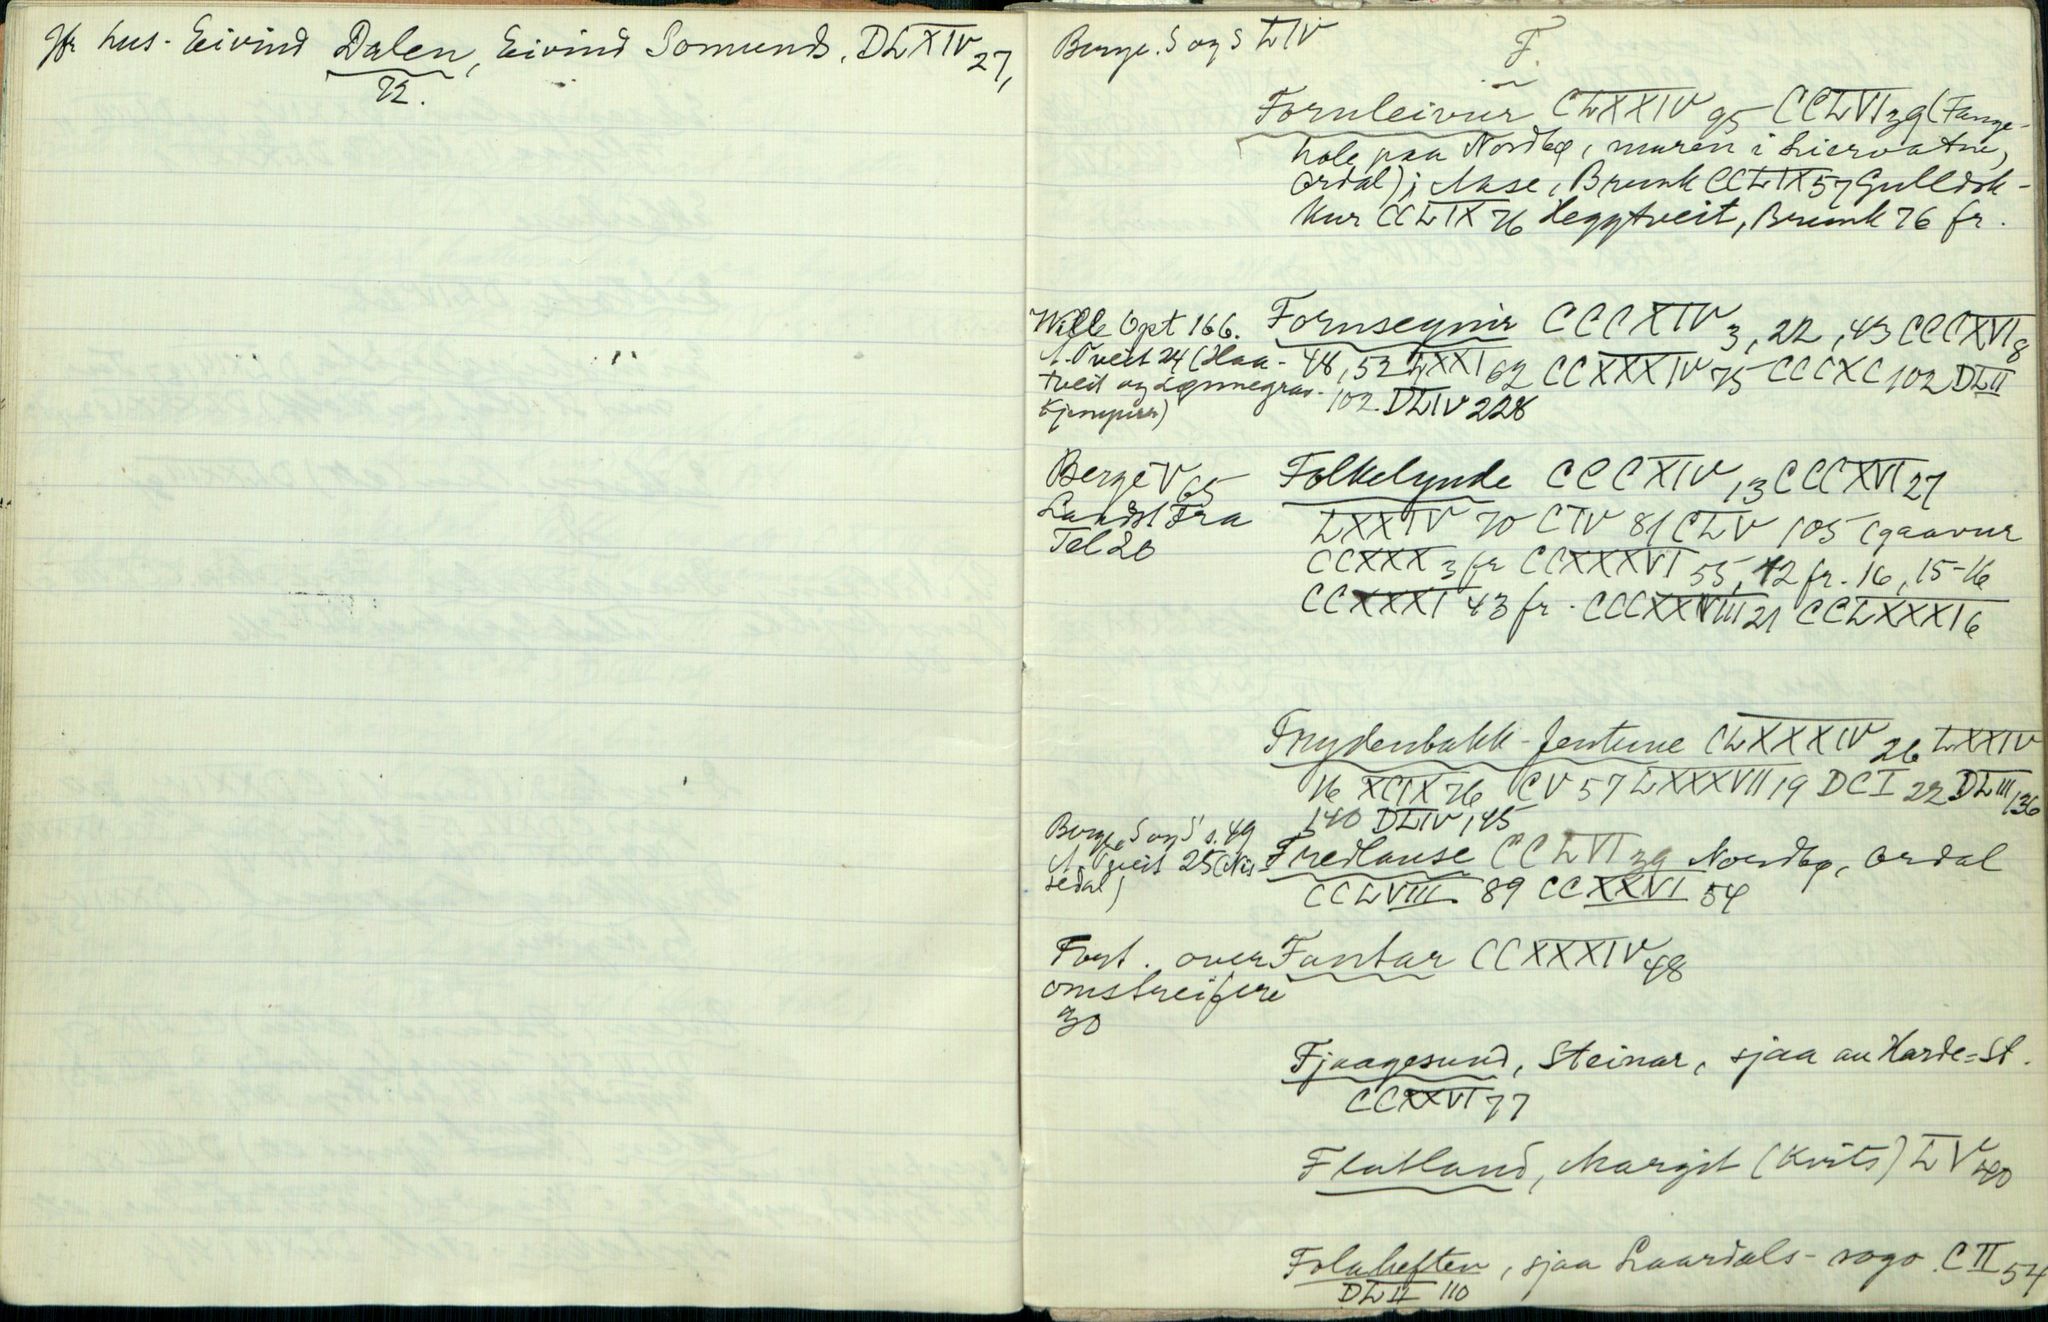 Jfr hus. Eivind Dalen, Eivind Somund. DLXIV 27,
72.
Berge. S og S LIV
F.
Fornleivur CLXXIV 95 CCLVI 39 (Fange-
hole paa Nordbø, muren i Liervatne,
Ordal) i Aase, Brunk CCLIX 57 Gulldok-
kur CCLIX 76 Heggtveit, Brunk 76 fr.
Wille Opt 166. Fornsegnir CCCXIV 3, 22, 43 CCCXVI 8
A. Tveit 24 (Haa- 48, 52 LXXI 62 CCXXXIV 75 CCCXC 102 DLII
tveit og Lønnegrav- 102. DLIV 228
kjempur)
Berge V 65 Folkelynde CCCXIV 13 CCCXVI 27
Landst Fra LXXIV 70 CIV 81 CLV 105 (gaavur
Tel 20 CCXXX 3 fr CCXXXVI 55, 12 fr. 16, 15-16
CCXXXI 43 fr. CCCXXVIII 21 CCLXXXI 6
Frydenbakk-jentune CLXXXIV 26 LXXIV
16 XCIX 76 CV 57 LXXXVII 19 DCI 22 DLIII 136
140 DLIV 145
Berge S og S s. 49
A. Tveit 25 (Nis Fredlause CCLVI 39 Nordbø, Ordal
sedal) CCLVIII 89 CCXXVI 54
Fort. over Fantar CCXXXIV 48
omstreifere
30
Fjaagesund, Steinar, sjaa au Harde-St.
CCXXVI 77
Flatland, Margit (Kvits) LV 40
Folaheften, sjaa Laardals-sogo. CII 54
DLII 110